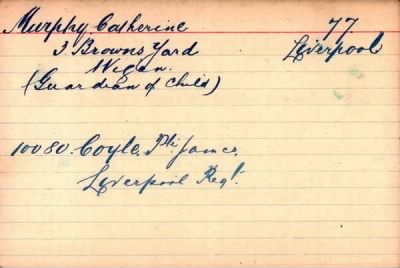 Murphy Catherine 77
3 Browns Yard Liverpool
Wigan.
(Guardian of Child)
10080 Coyle. Pte James.
Liverpool Regt.